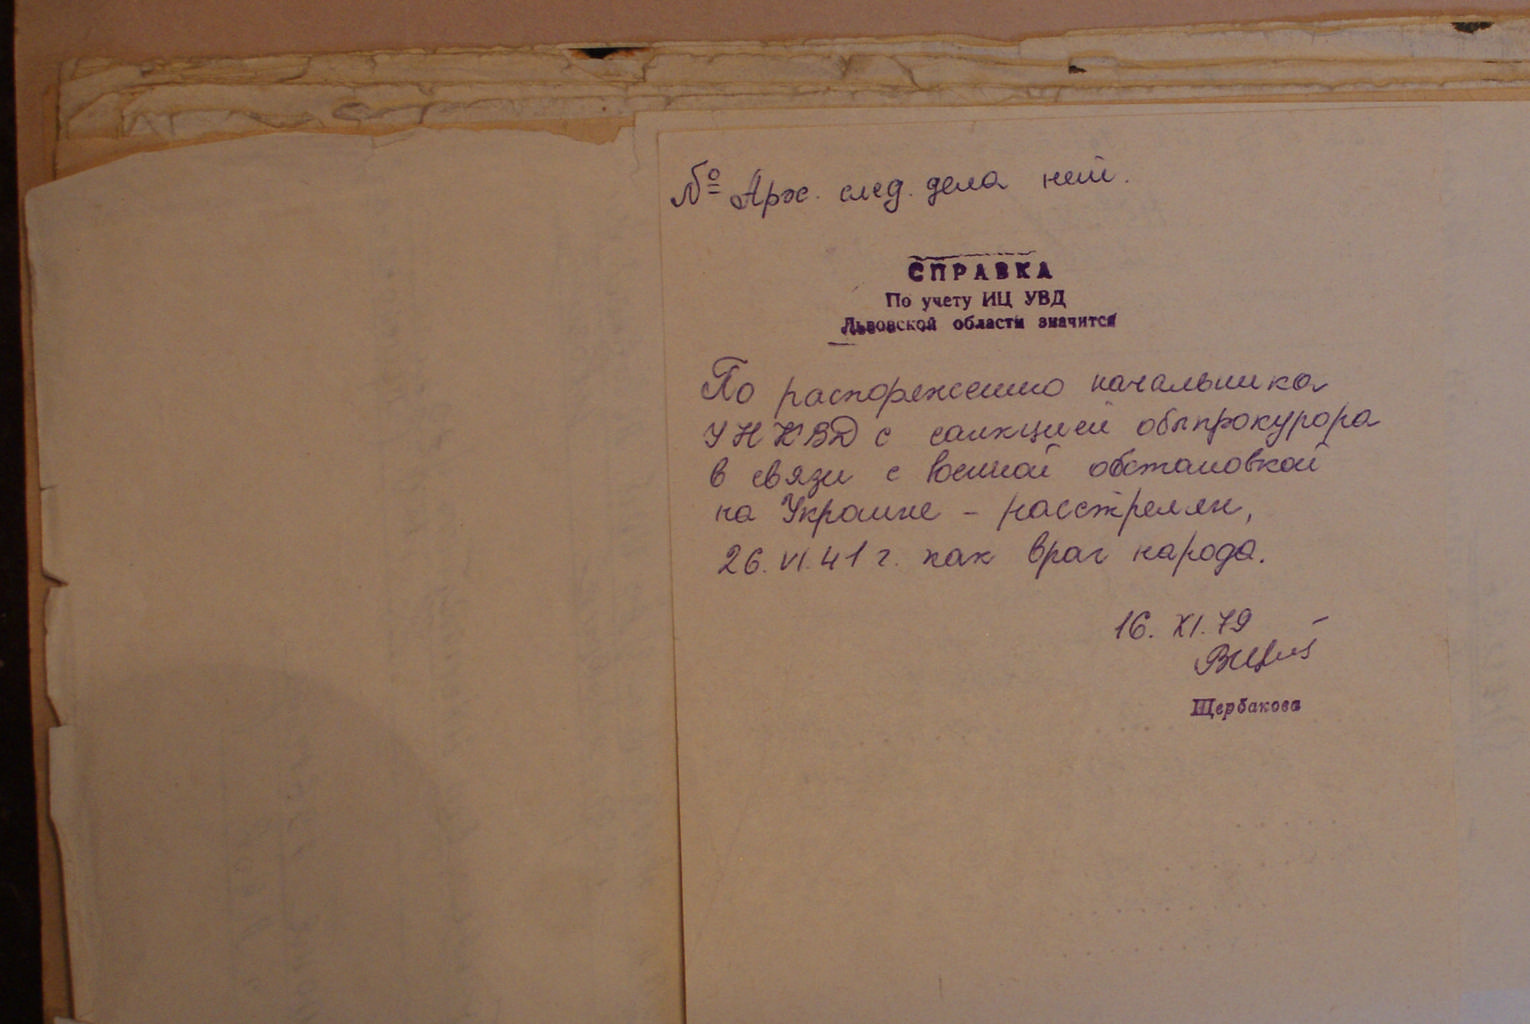 № Арх. след. дела нет.
СПРАВКА
По учету ИЦ УВД
Львовской области значится
По распоряжению начальника
УНКВД с санкцией облпрокурора
в связи с военной обстановкой
на Украине - расстрелян,
26.VI.41 г. как враг народа.
16. XI. 79
Щербакова